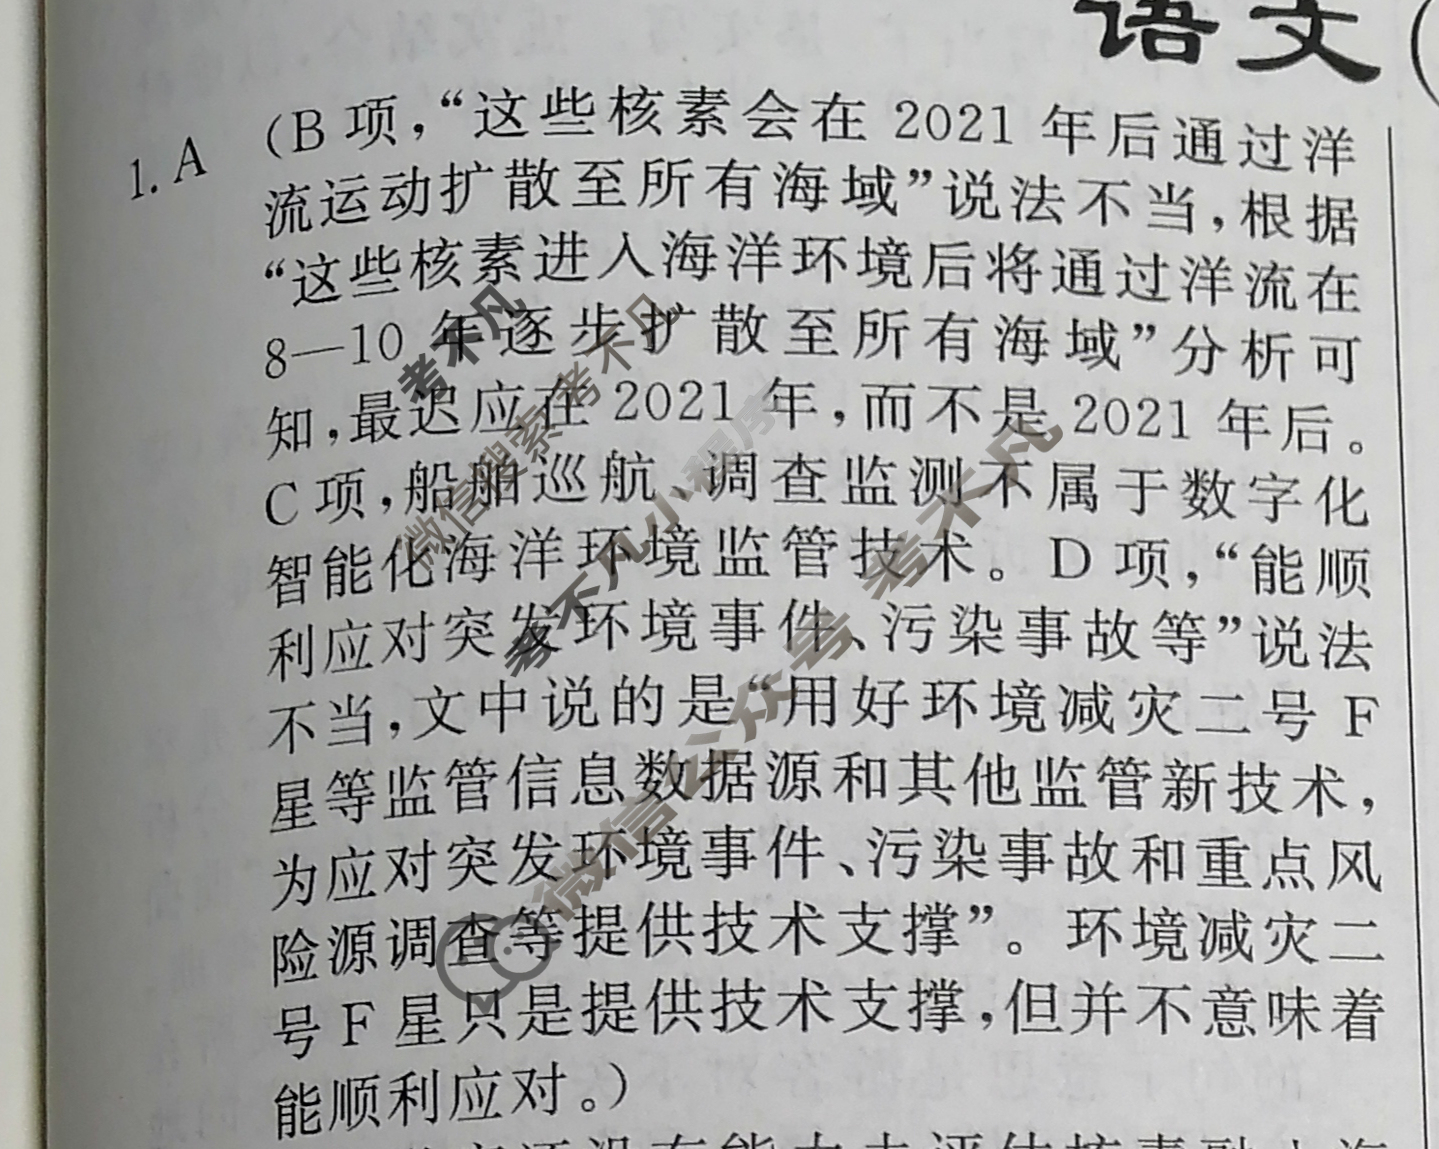 语文(
1.A (B项,“这些核素会在 2021 年后通过洋
流运动扩散至所有海域”说法不当,根据
“这些核素进入海洋环境后将通过洋流在
8—10 年逐步扩散至所有海域”分析可
知,最迟应在 2021 年,而不是 2021 年后。
C 项,船舶巡航、调查监测不属于数字化
智能化海洋环境监管技术。D 项,“能顺
利应对突发环境事件、污染事故等”说法
不当,文中说的是“用好环境减灾二号 F
星等监管信息数据源和其他监管新技术,
为应对突发环境事件、污染事故和重点风
险源调查等提供技术支撑”。环境减灾二
号 F 星只是提供技术支撑,但并不意味着
能顺利应对。)
考不凡
微信搜索考不凡
考不凡小程序
微信公众号 考不凡